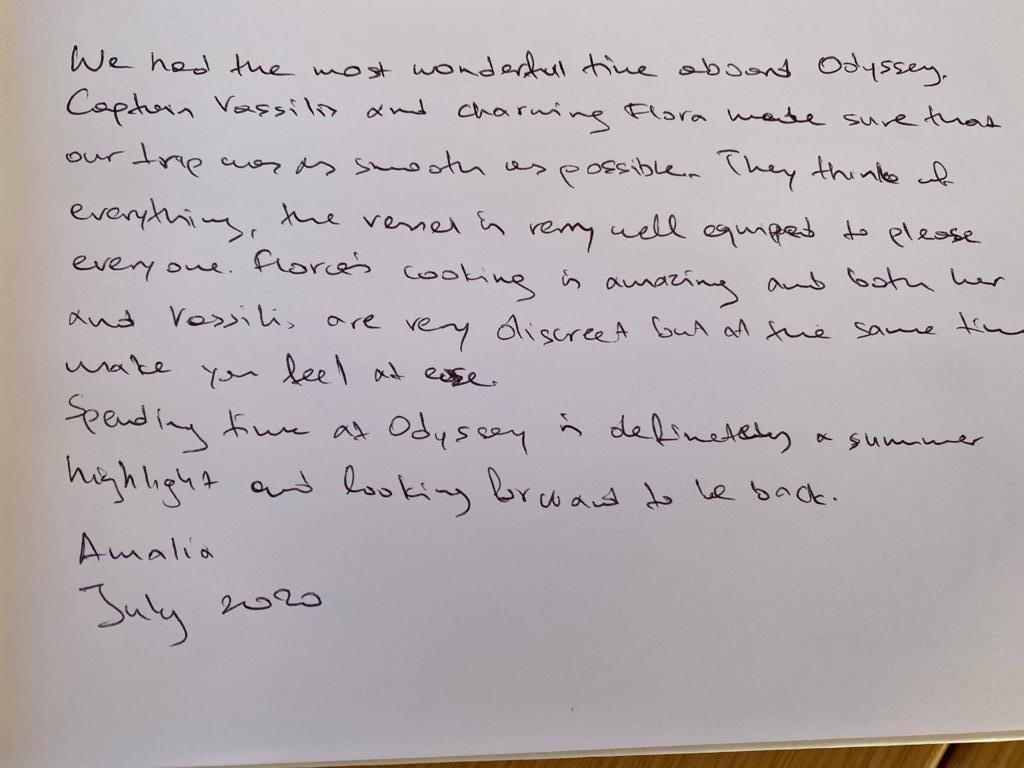 We had the most wonderful time aboard Odyssey.
Captain Vassilis and charming Flora made sure that
our trip was as smooth as possible. They think of
everything, the vessel is very well equiped to please
everyone. Flora's cooking is amazing and both her
and Vassilis are very discreet but at the same tim
make you feel at ease.
Spending time at Odyssey is definetely a summer
highlight and looking forward to be back.
Amalia
July 2020